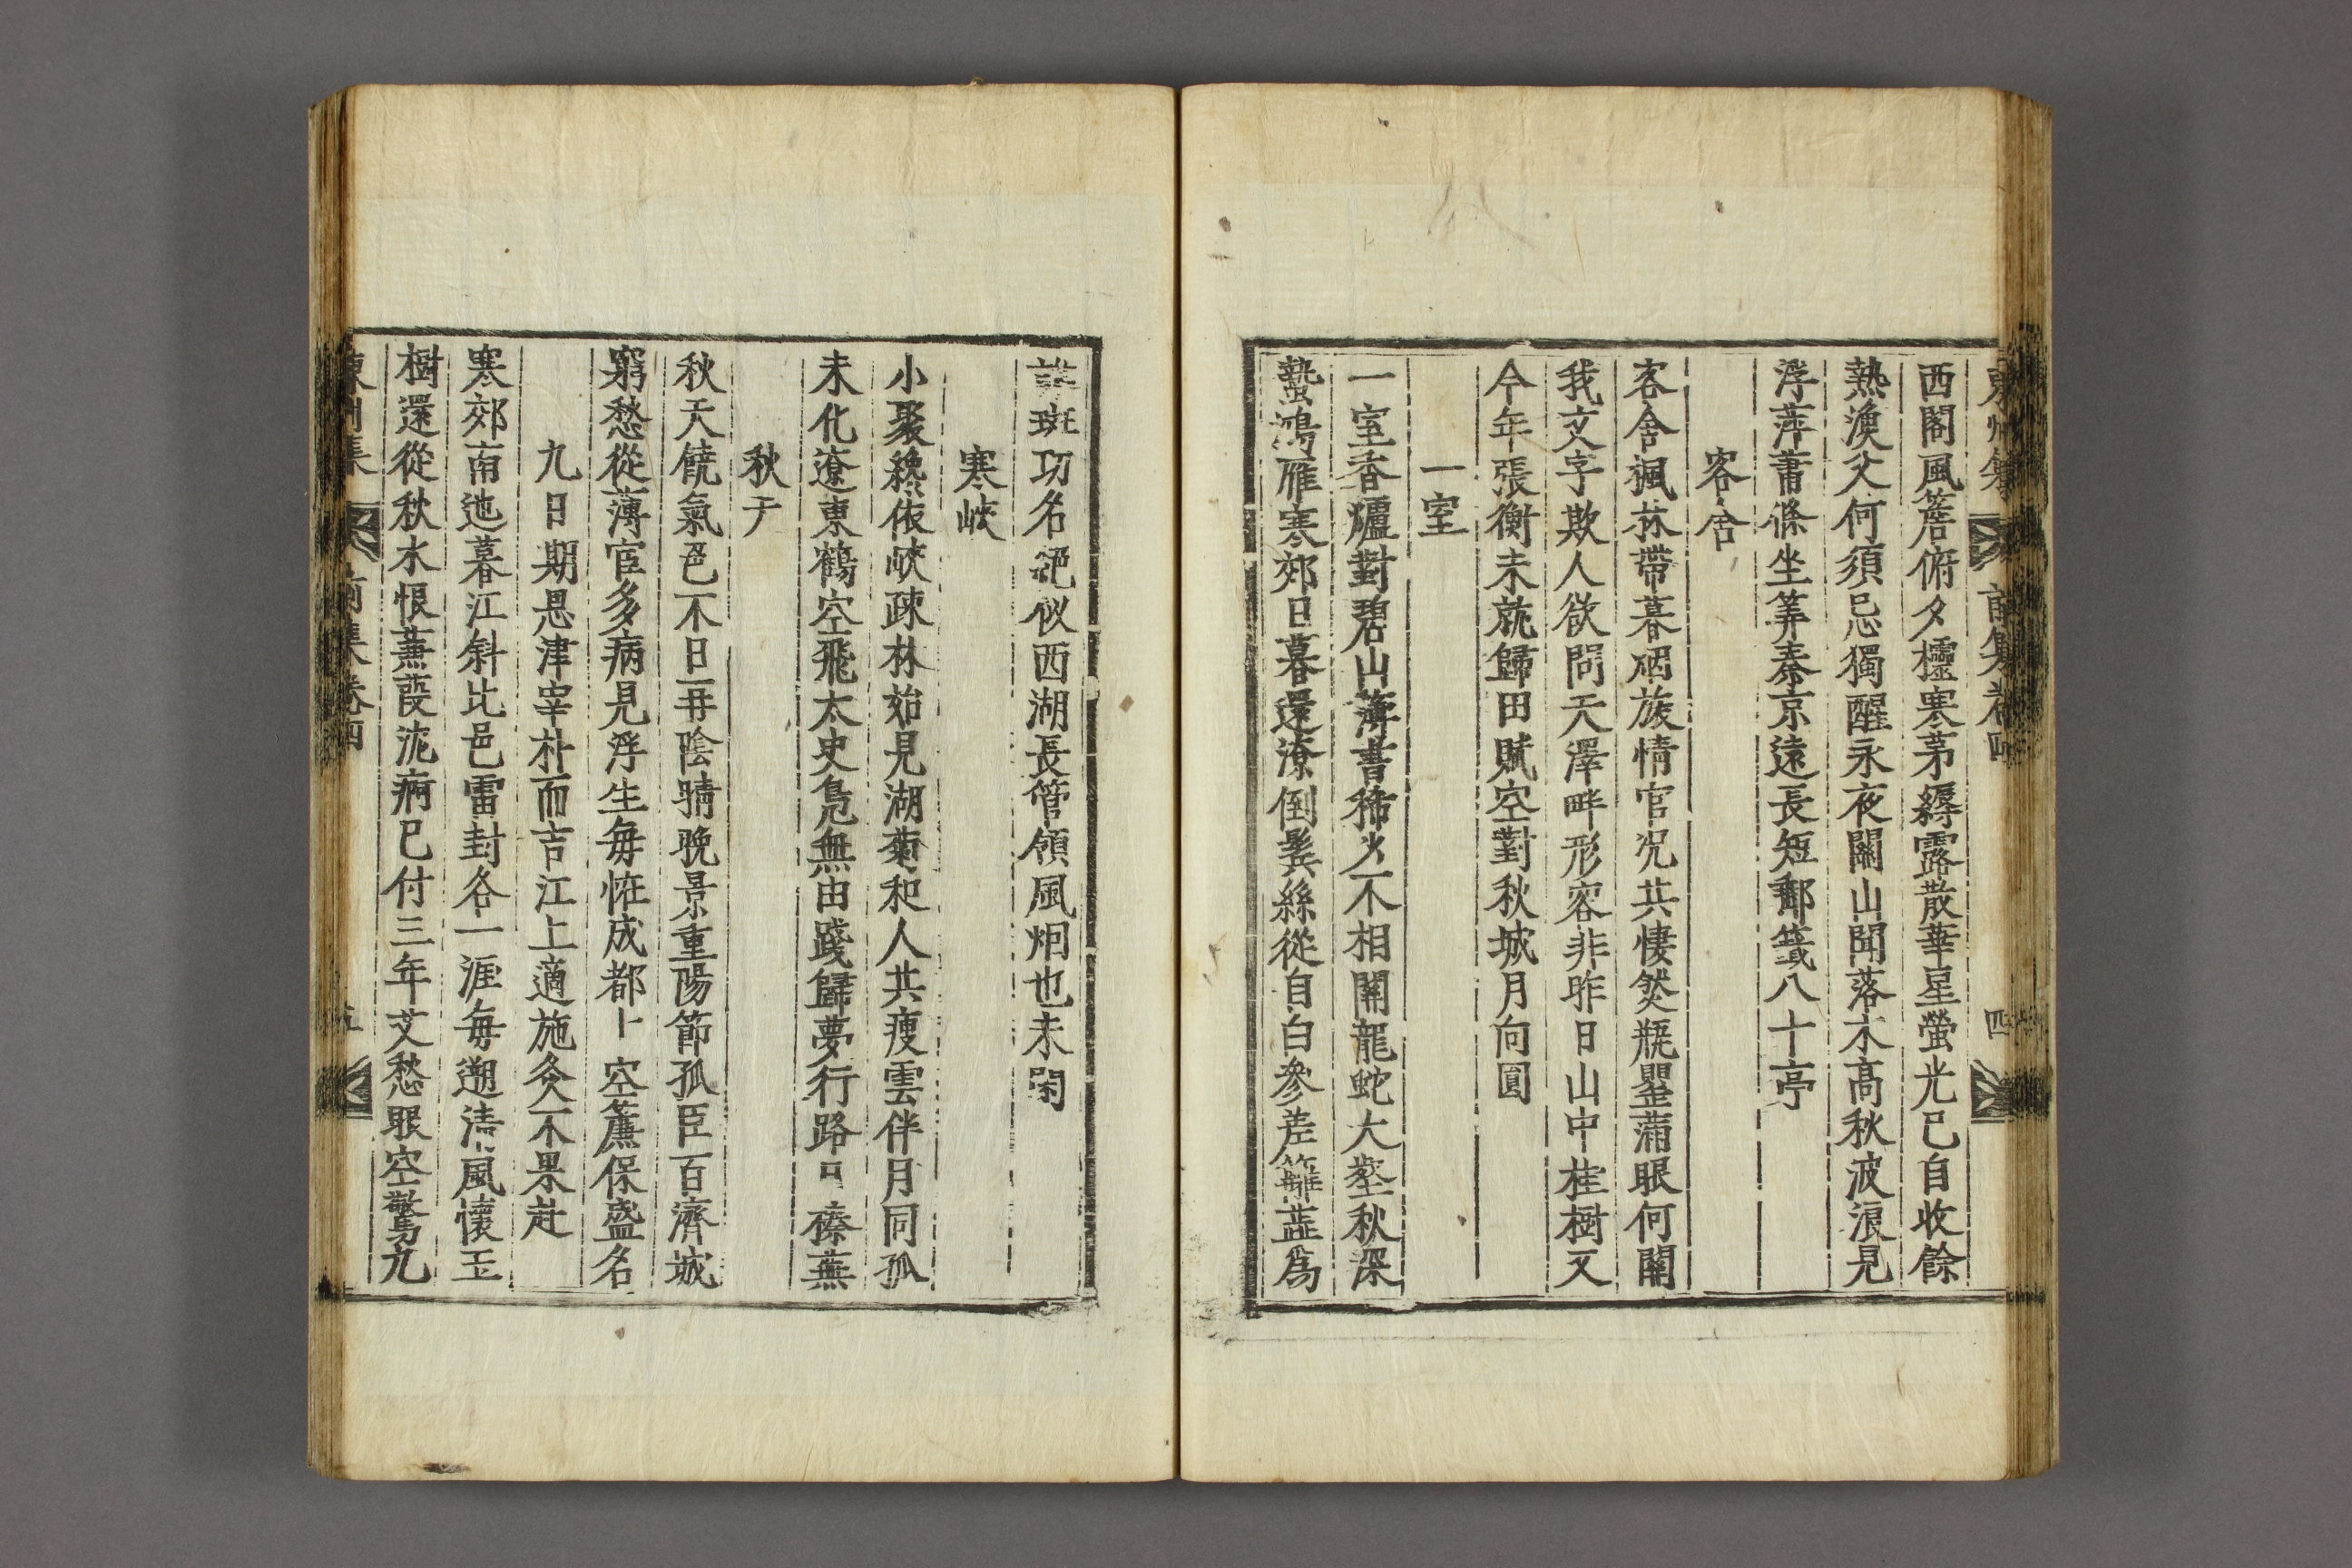 東州集 前集卷四 四
西閣風簷俯夕欞寒茅縟露散華星螢光已自收餘
熱漁父何須忌獨醒永夜關山聞落木高秋波浪見
浮萍蕭條坐筭秦京遠長短郵籤八十亭
客舍
客舍楓林帶暮烟旅情官况共悽然瓶罌滿眼何關
我文字欺人欲問天澤畔形容非昨日山中桂樹又
今年張衡未就歸田賦空對秋城月向圓
一室
一室香爐對碧山薄書稀少不相關龍蛇大壑秋深
蟄鴻雁寒郊日暮還潦倒鬂絲從自白參差虀爲
斑功名絕似西湖長管領風烟也未閑
寒峽
小聚穐依峽疎林始見湖菊和人共瘦雲伴月同孤
未化遼東鶴空飛太史鳧無由踐歸夢行路口榛蕪
秋天
秋天饒氣色不日再陰晴晚景重陽節孤臣百濟城
窮愁從薄宦多病見浮生每恠成都卜空簾保盛名
九日期恩津宰朴而吉江上適施灸不果赴
寒郊南池暮江斜比邑雷封各一涯每遡淸風懷玉
樹還從秋水恨蒹葭沈痾已付三年艾愁眼空驚九
東州集 前集卷四 五